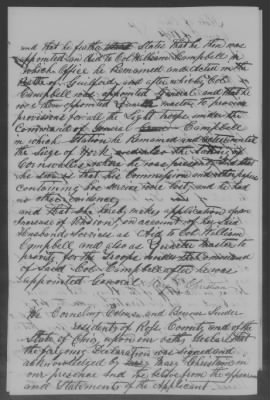 and that he further states that he then was
appointed an Aid to Col William Campbell in
which Office he Remained and acted in the
Battle of Guilford and after which Col
Campbell was appointed General and that he
was then appointed Quarter master to provide
provisions for all the Light troops under the
Command of General Campbell
in which Station he Remained and
the Siege of York and the
Cornwallis where he was present and that
she his Commission and other papers
Containing his service were lost and he had
no other evidence
and that she had made application for an
increase of Pension on account of her said
Husbands Services as Aid to Col William
Campbell and also as Quarter master to
provide for the Troops under the Command
of Said Col Campbell after he was
appointed General Mary Christian
We Cornelius and
residents of Ross County and of the
State of Ohio upon our oaths declare that
the foregoing Declaration was signed and
acknowledged by Mary Christian in
our presence and we believe from the appearance
and Statements of the applicant